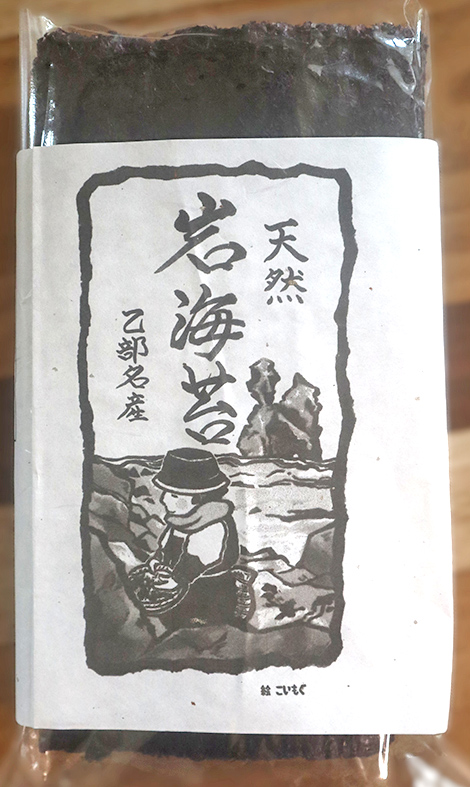 天然
岩海苔
乙部名産
絵 こいもぐ